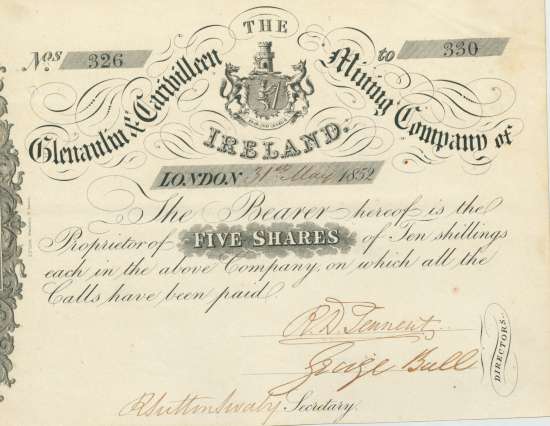 THE
Nos 326 to 330
Glenaulin & Caribilleen Mining Company of
IRELAND.
LONDON 31st May 1852
The Bearer hereof is the
Proprietor of FIVE SHARES of Ten shillings
each in the above Company, on which all the
Calls have been paid.
R. D. Tennent
George Bull
DIRECTORS.
Secretary.